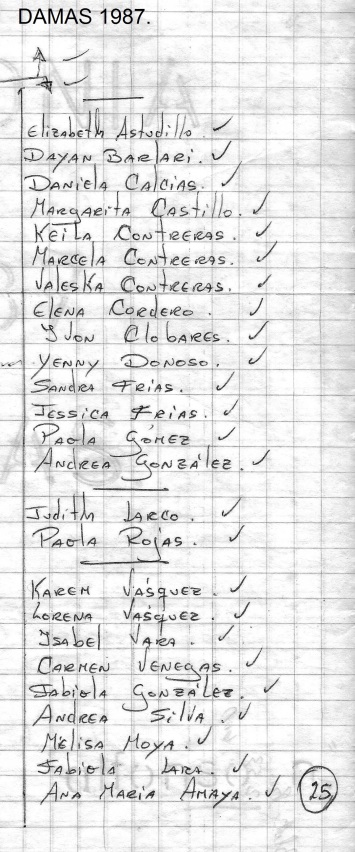 DAMAS 1987.
Elizabeth Astudillo. ✓
DAYAN BARLARI. ✓
DANIELA CALCIAS. ✓
MARGARITA CASTILLO. ✓
KEILA CONTRERAS. ✓
MARCELA CONTRERAS. ✓
VALESKA CONTRERAS. ✓
ELENA CORDERO. ✓
YVON ClobARES. ✓
YENNY DONOSO. ✓
SANDRA FRIAS. ✓
JESSICA FRIAS. ✓
PAOLA GÓMEZ ✓
ANDREA GONZÁLEZ. ✓
Judith LARCO. ✓
PAOLA ROJAS. ✓
KAREM VÁSQUEZ. ✓
LORENA VÁSQUEZ. ✓
YSABEL VARA. ✓
CARMEN VENEGAS. ✓
FABIOLA GONZÁLEZ. ✓
ANDREA SILVA. ✓
MELISA MOYA. ✓
FABIOLA LARA. ✓
ANA MARIA AMAYA. ✓ 25